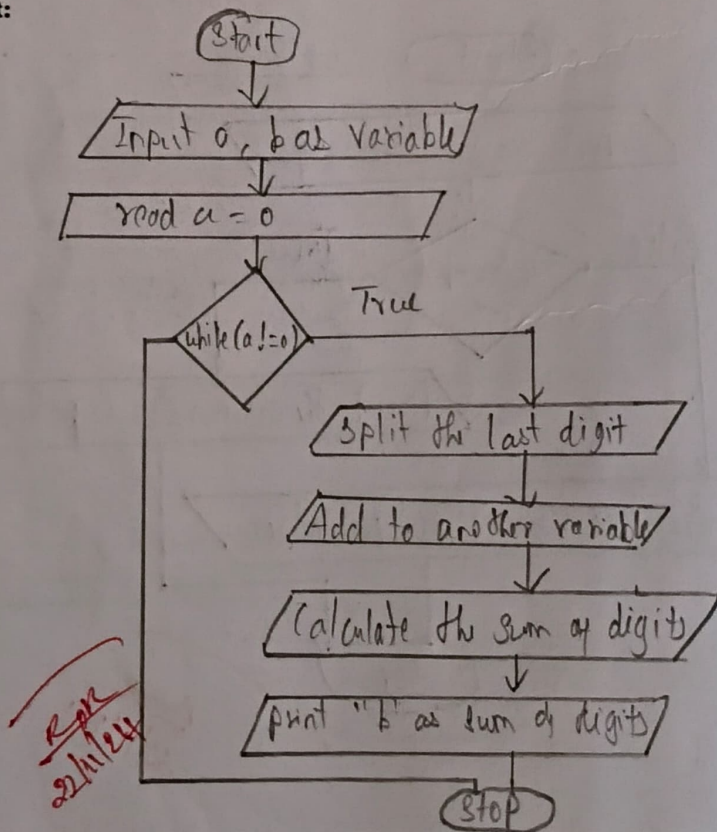 t:
Start
Input a, b as variable
read a = 0
while(a!=0)
True
Split the last digit
Add to another variable
Calculate the sum of digits
print "b" as sum of digits
22/11/24
Stop